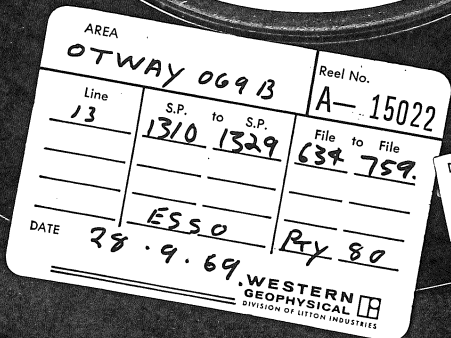 AREA
OTWAY 069B
Reel No.
A— 15022
Line S.P. to S.P. File to File
13 1310 1329 634 759.
ESSO Pty 80
DATE 28.9.69
WESTERN
GEOPHYSICAL
DIVISION OF LITTON INDUSTRIES